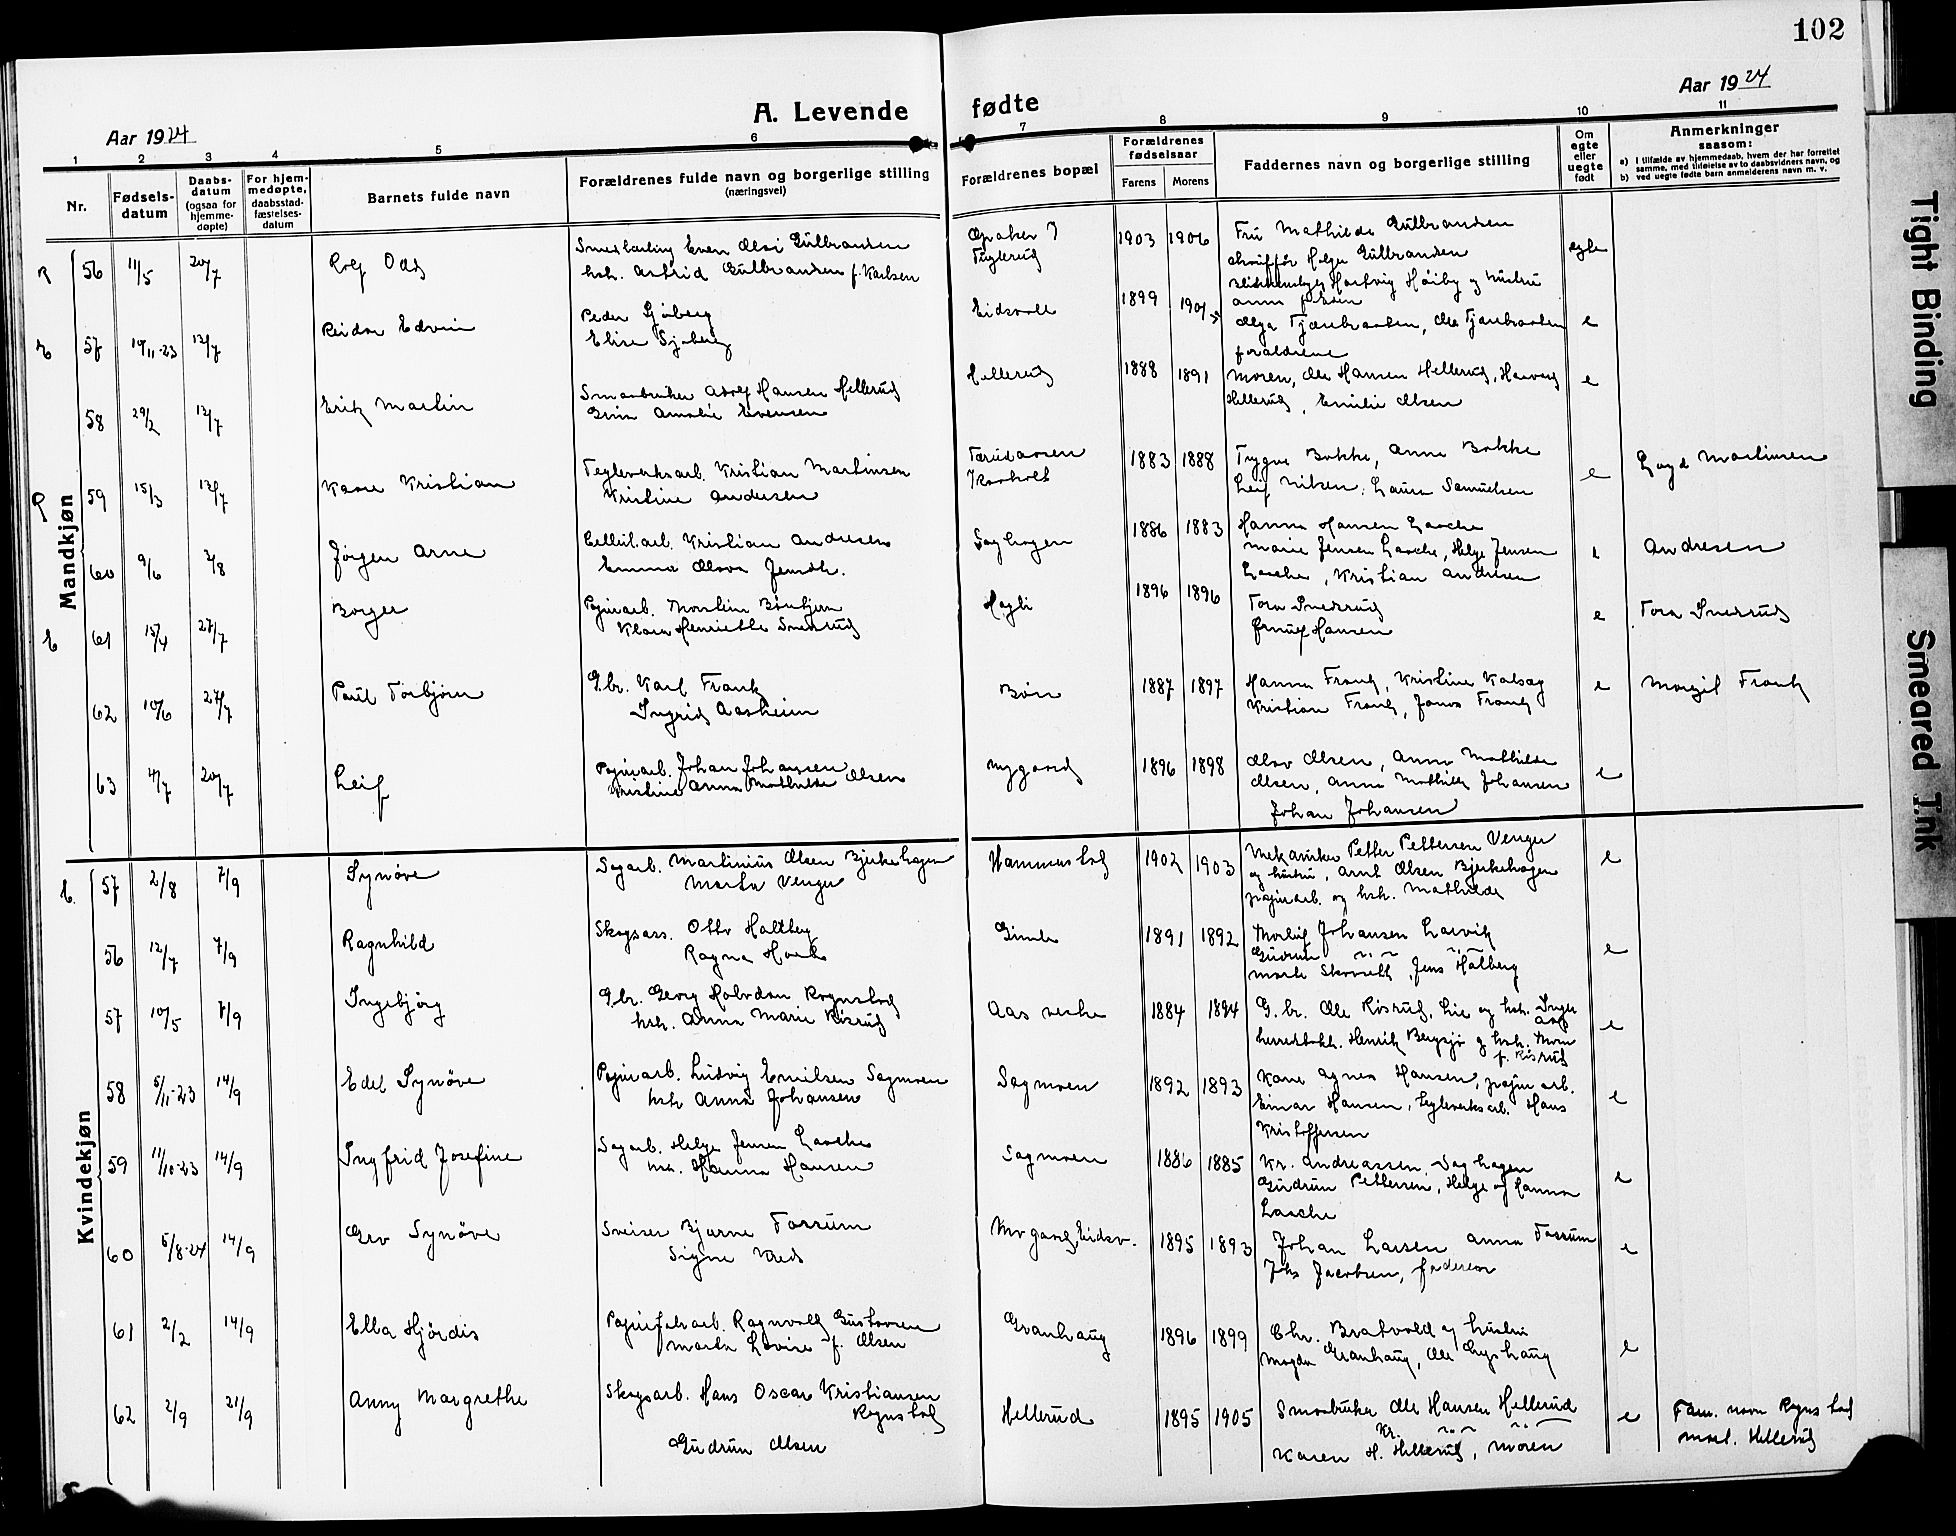 102
Aar 1924
A. Levende fødte
Aar 1924
1 2 3 4 5 6 7 8 9 10 11
Nr.
Fødsels-
datum
Daabs-
datum
(ogsaa for
hjemme-
døpte)
For hjem-
medøpte,
daabsstad-
fæstelses-
datum
Barnets fulde navn
Forældrenes fulde navn og borgerlige stilling
(næringsvei)
Forældrenes bopæl
Forældrenes
fødselsaar
Farens Morens
Faddernes navn og borgerlige stilling
Om
egte
eller
uegte
født
Anmerkninger
saasom:
a) I tilfælde av hjemmedaab, hvem der har forrettet
samme, med tilføielse av to daabsvidners navn, og
b) ved uegte fødte barn anmelderens navn m. v.
Mandkjøn
56 11/5 20/7 Rolf Odd
Even Gulbrandsen
hst. Astrid Gulbrandsen f. Karlsen
1903 1906
Fru Mathilde Gulbrandsen
Helga Gulbrandsen
Hartvig Høiby og hustru
egte
57 19/11-23 13/7 Reidar Edvin
Peder Sjøberg
Elise Sjøberg
Eidsvoll
1899 1901
Olga Tjærebraaten, Ole Tjærebraaten
forældrene
e
58 29/2 13/7 Erik Martin
Smaabruker Adolf Hansen Hellerud
Amalie Evensen
Hellerud
1888 1891
Moren, Ole Hansen Hellerud, Haavard
Hellerud, Emilie Olsen
e
59 15/3 13/7 Kaare Kristian
Teglverksarb. Kristian Martinsen
Kristine Andersen
1883 1888
Trygve Bakke, Anna Bakke
Leif Nilsen, Laura Samuelsen
e
Martinsen
60 9/6 3/8 Jørgen Arne
Cellul.arb. Kristian Andresen
Emma Olava
Saghagen
1886 1883
Hanna Hansen Laache
Marie Jensen Laache, Helge Jensen
Laache, Kristian Andresen
e
Andresen
61 15/4 27/7 Borger
Papirarb. Martin
Klara Henriette Snesrud
Hagli
1896 1896
Tora Snesrud
Hansen
e
Tora Snesrud
62 10/6 27/7 Paul Torbjørn
Gbr. Karl Frank
Ingrid Aasheim
Bøn
1887 1897
Hanna Frank, Kristine
Kristian Frank, Jonas Frank
e
Margit Frank
63 4/7 20/7 Leif
Papirarb. Johan Johansen
Kristine Anna Mathilde Olsen
Nygaard
1896 1898
Olav Olsen, Anna Mathilde
Olsen, Anna Mathilde Johansen
Johan Johansen
e
Kvindekjøn
57 2/8 7/9 Synøve
Sagarb. Martinius Olsen Bjerkehagen
Marta Venger
Hammerstad
1902 1903
Mekaniker Petter Pettersen Venger
og hustru, Arnt Olsen Bjerkehagen
papirarb. og hst. Mathilde
e
56 12/7 7/9 Ragnhild
Skogsass. Otto Haltberg
Ragna
Gimle
1891 1892
Johansen Larvik
Gudrun
Marte, Jens Halberg
e
57 10/5 7/9 Ingebjørg
Gbr. Georg Halvdan Rognstad
hst. Anna Marie Risrud
Aas vestre
1884 1894
G.br. Ole Risrud, Lie og hst. Inger
Henrik Bergsjø og hst.
f. Risrud
e
58 5/11-23 14/9 Edel Synøve
Papirarb. Ludvig Emilsen Sagmoen
hst Anna Johansen
Sagmoen
1892 1893
Kone Agnes Hansen, papirarb.
Einar Hansen, teglverksarb. Hans
Kristoffersen
e
59 11/10-23 14/9 Ingfrid Josefine
Sagarb. Helge Jensen Laache
hst. Hanna Hansen
Sagmoen
1886 1885
Kr. Andreassen, Saghagen
Gudrun Pettersen, Helge og Hanna
Laache
e
60 5/8-24 14/9 Gro Synøve
Sveiser Bjarne Fossum
Signe
Eidsv.
1895 1893
Johan Larsen Anna Fossum
Jacobsen, faderen
e
61 2/2 14/9 Ella Hjørdis
Papirfabarb. Ragnvald Gustavsen
Marta Lovise f. Olsen
Granhaug
1896 1899
Chr. Bratvold og hustru
Magda Granhaug, Ole Lyshaug
e
62 2/9 21/9 Anny Margrethe
Skogsarb. Hans Oscar Kristiansen
Rognstad
Gudrun Olsen
Hellerud
1895 1905
Smaabruker Ole Hansen Hellerud
Kr.
Karen H. Hellerud, Moren
e
Fam. navn Rognstad
Hellerud
Tight Binding
Smeared Ink